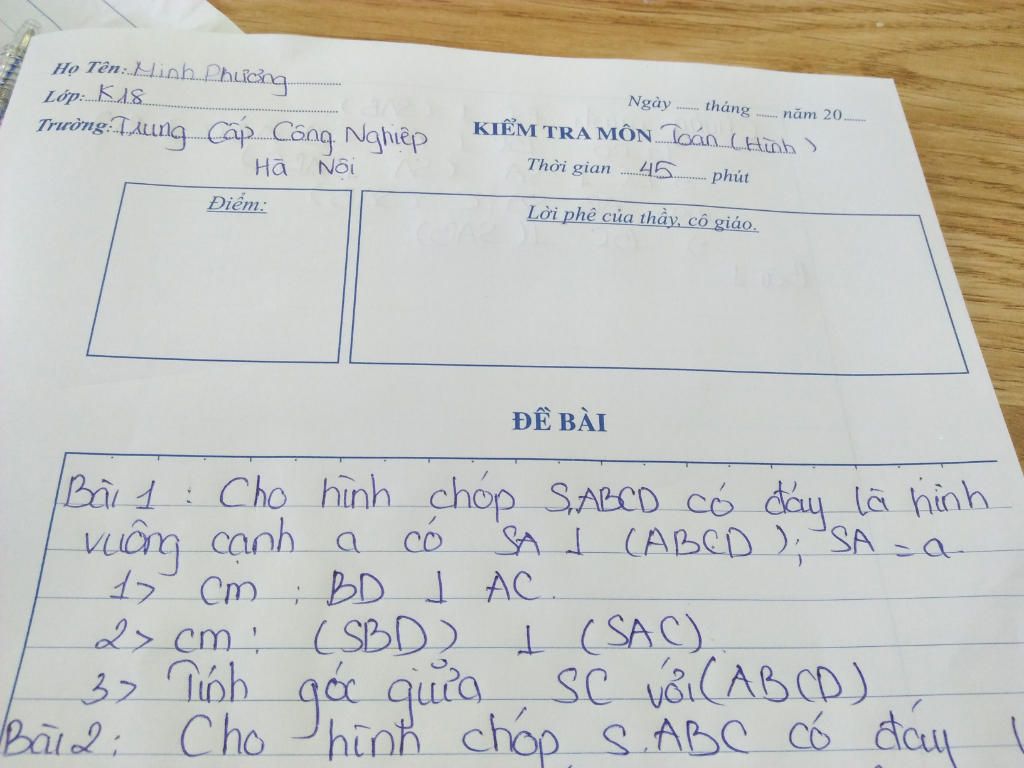 Họ Tên: Minh Phương
Lớp: K18
Ngày ...... tháng ...... năm 20 ......
Trường: Trung Cấp Công Nghiệp
Hà Nội
KIỂM TRA MÔN Toán (Hình)
Thời gian 45 phút
Điểm:
Lời phê của thầy, cô giáo.
ĐỀ BÀI
Bài 1 : Cho hình chóp S.ABCD có đáy là hình
vuông cạnh a có SA ⊥ (ABCD); SA = a
1> cm : BD ⊥ AC.
2> cm : (SBD) ⊥ (SAC)
3> Tính góc giữa SC với (ABCD)
Bài 2 : Cho hình chóp S.ABC có đáy